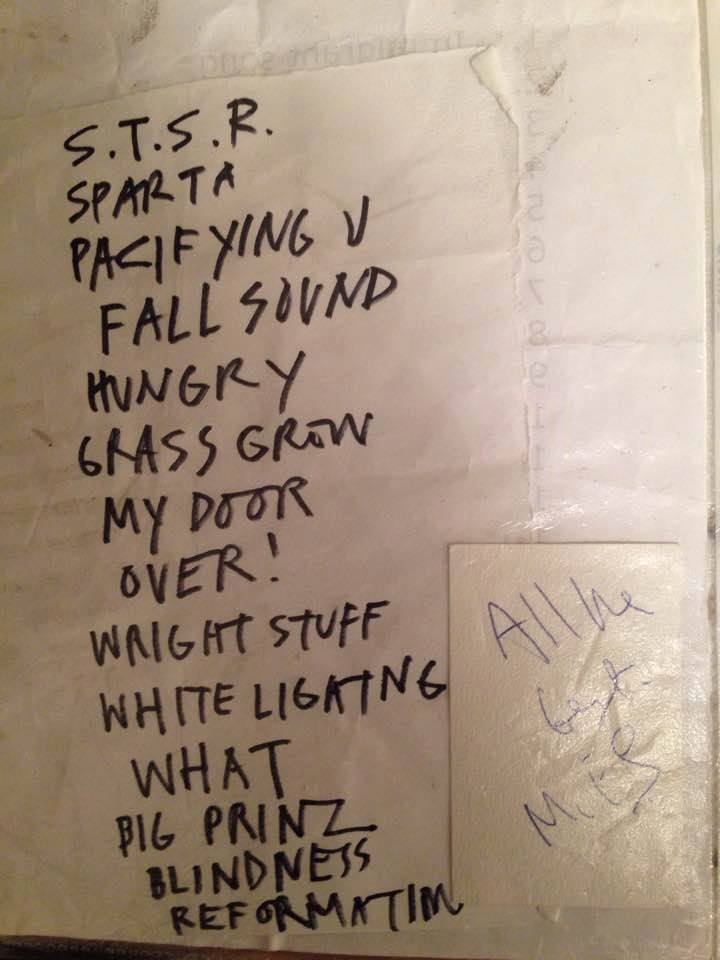 S.T.S.R.
SPARTA
PACIFYING U
FALL SOUND
HUNGRY
GRASS GROW
MY DOOR
OVER!
WRIGHT STUFF
WHITE LIGATNG
WHAT
BIG PRINZ
BLINDNESS
REFORMATIM
All the
best.
Immigrant song
1
2
3
4
5
6
7
8
9